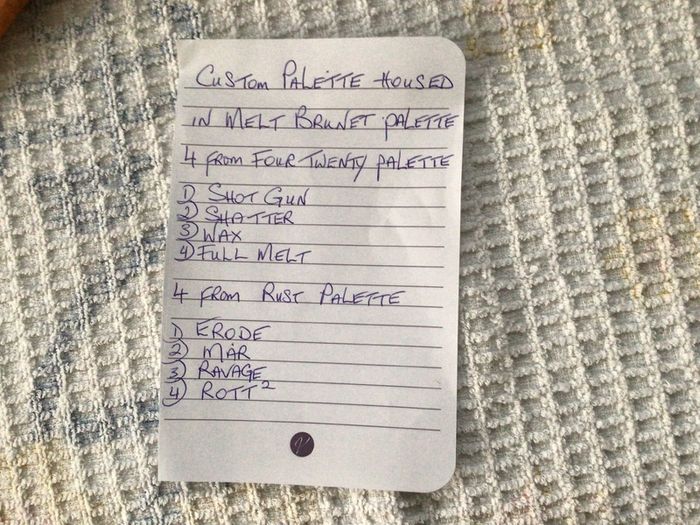 CUSTOM PALETTE HOUSED
IN MELT BRUNET PALETTE
4 FROM FOUR TWENTY PALETTE
1) SHOT GUN
2) SHATTER
3) WAX
4) FULL MELT
4 FROM RUST PALETTE
1) ERODE
2) MAR
3) RAVAGE
4) ROTT²